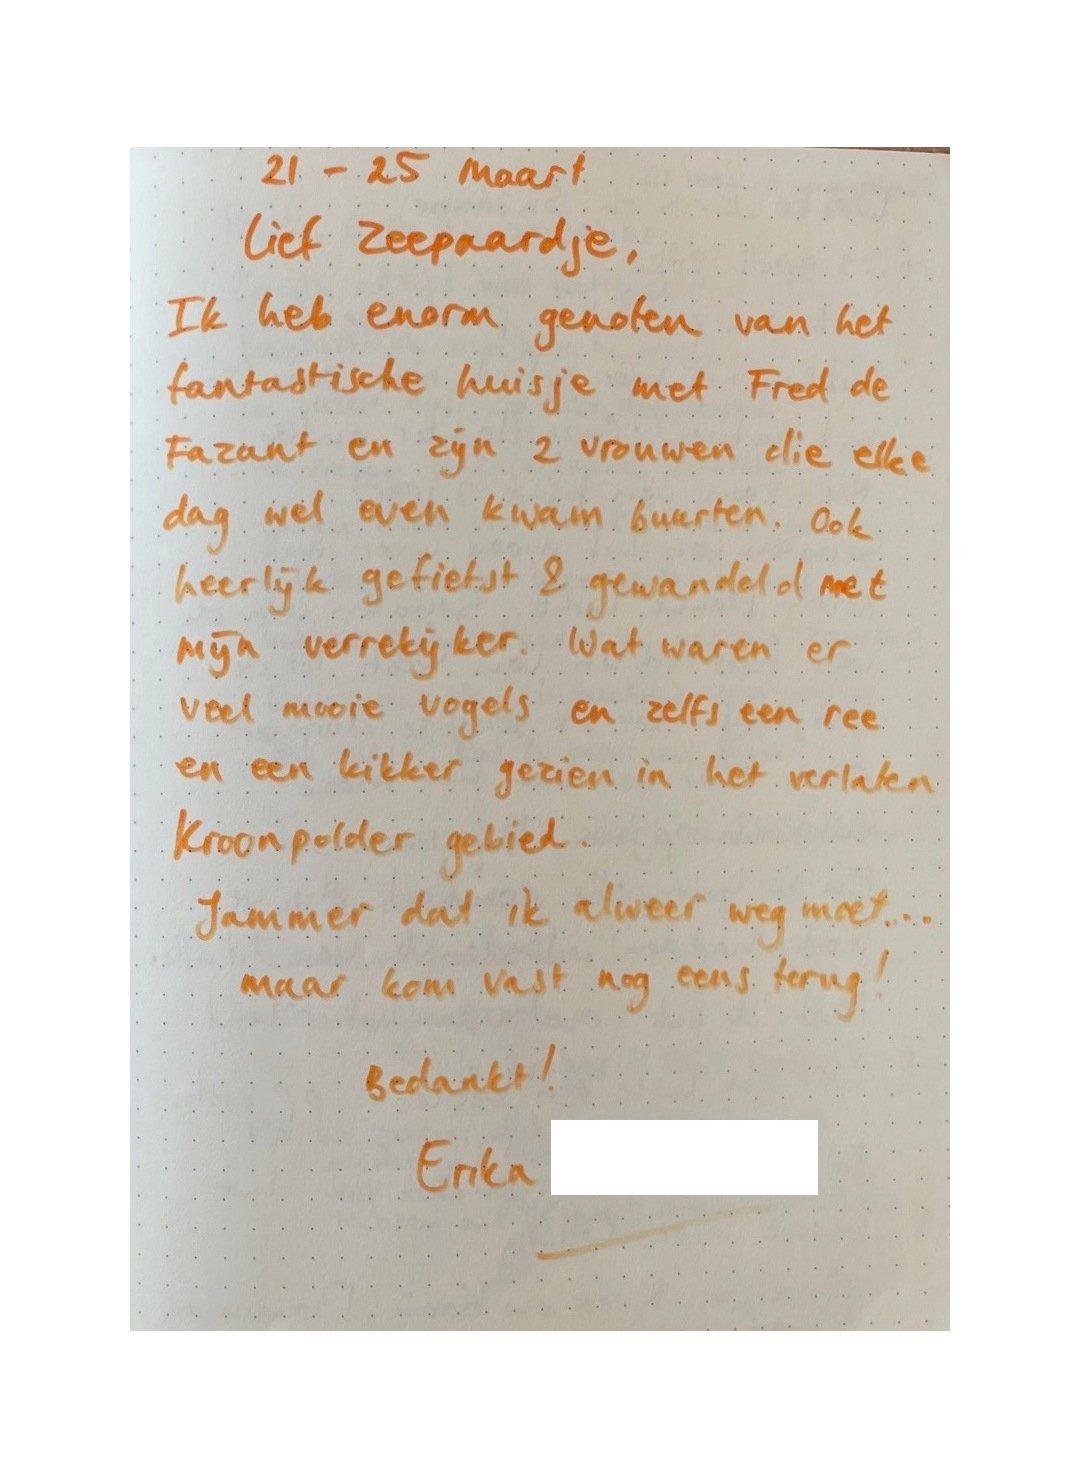 21 - 25 maart
Lief Zeepaardje,
Ik heb enorm genoten van het
fantastische huisje met Fred de
Fazant en zijn 2 vrouwen die elke
dag wel even kwam buurten. Ook
heerlijk gefietst & gewandeld met
mijn verrekijker. Wat waren er
veel mooie vogels en zelfs een ree
en een kikker gezien in het verlaten
Kroonpolder gebied.
Jammer dat ik alweer weg moet...
maar kom vast nog eens terug!
Bedankt!
Erika